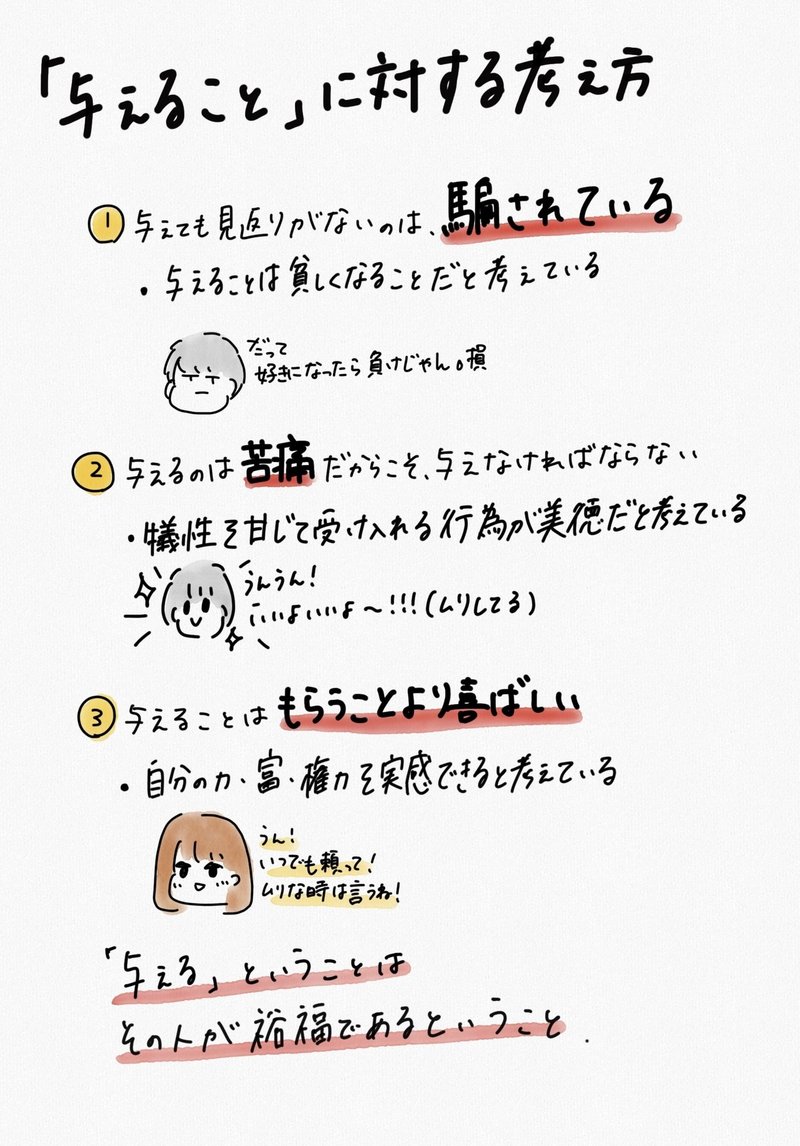 「与えること」に対する考え方
1 与えても見返りがないのは、騙されている
・与えることは貧しくなることだと考えている
だって
好きになったら負けじゃん。損
2 与えるのは苦痛だからこそ、与えなければならない
・犠牲を甘じて受け入れる行為が美徳だと考えている
うんうん!
いいよいいよ〜!!!(ムリしてる)
3 与えることはもらうことより喜ばしい
・自分の力・富・権力を実感できると考えている
うん!
いつでも頼って!
ムリな時は言うね!
「与える」ということは
その人が裕福であるということ.